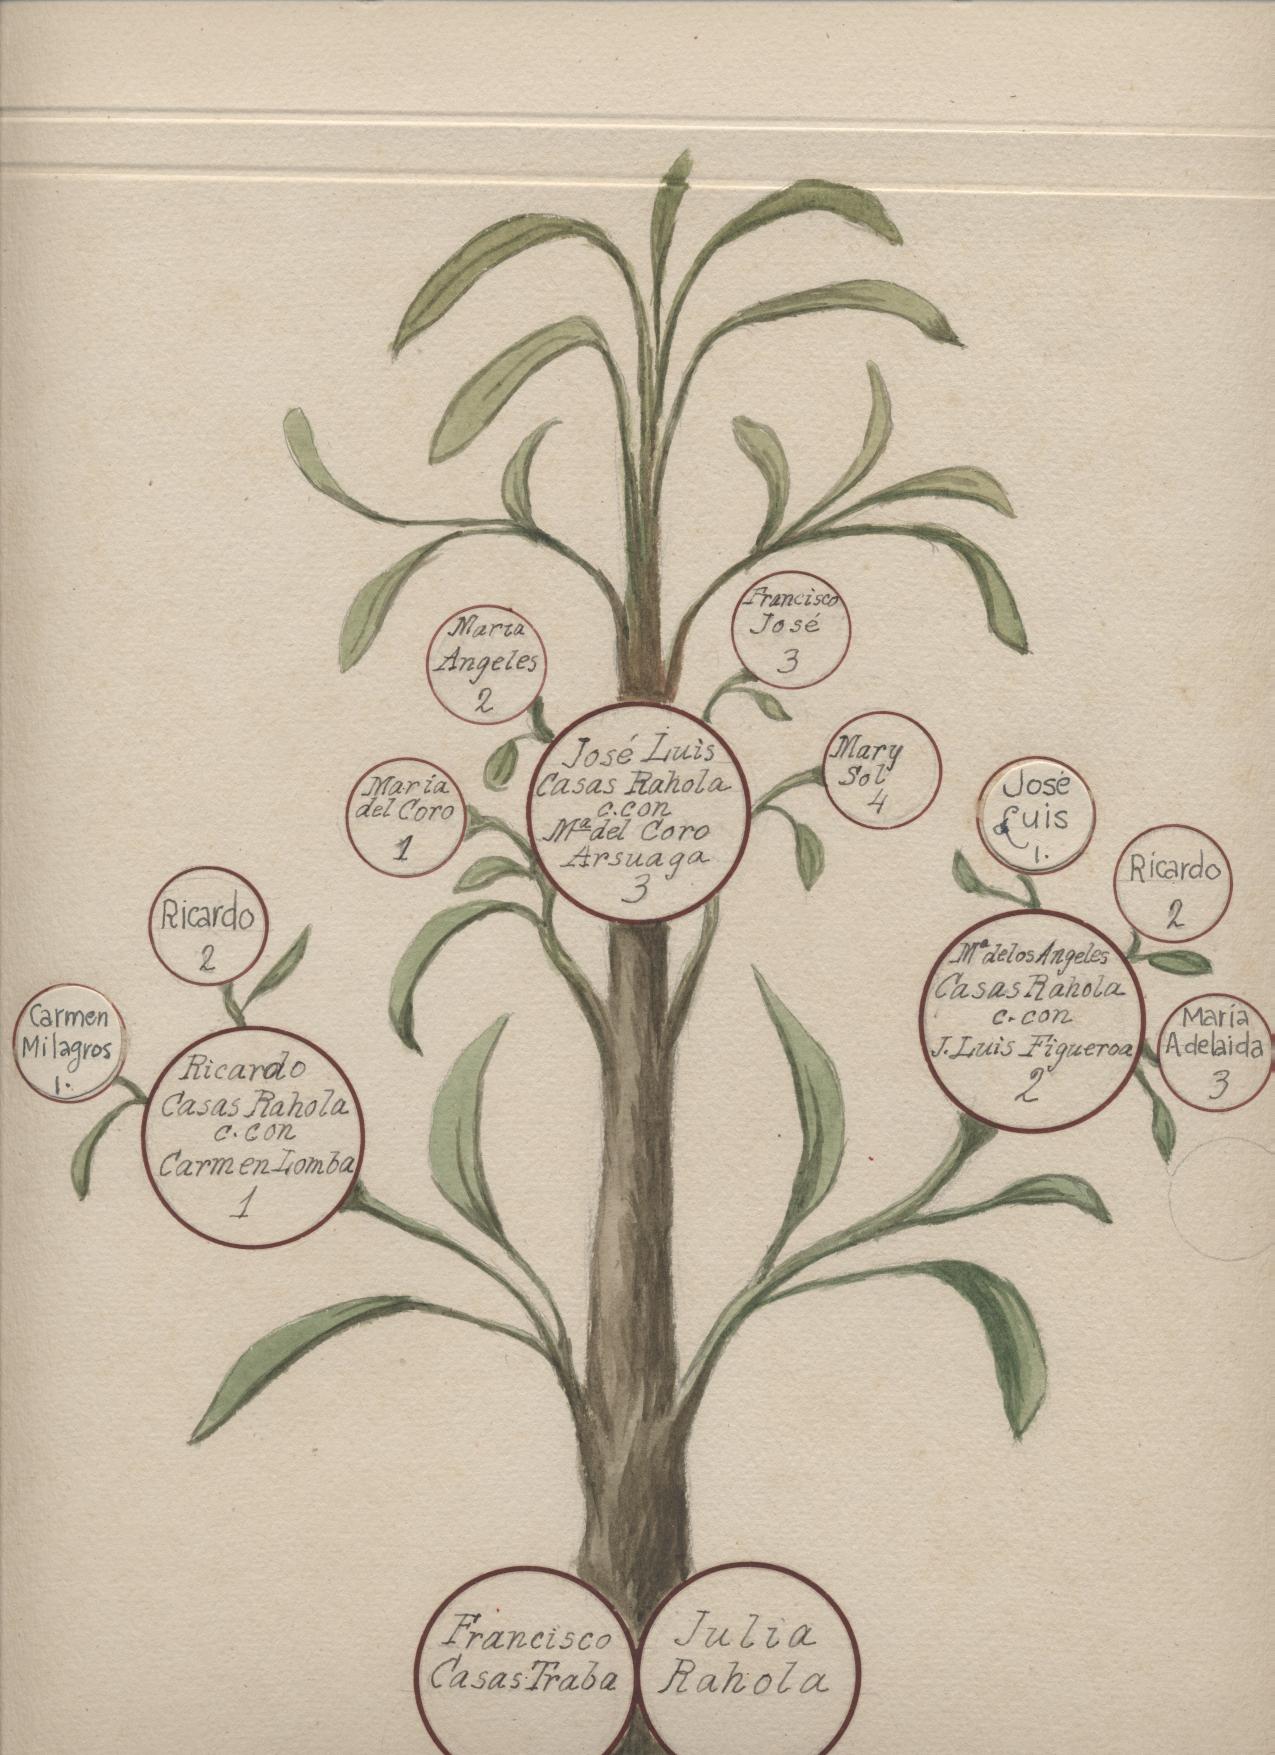 Francisco
José
3
María
Angeles
2
José Luis
Casas Rahola
c.con
Mª del Coro
Arsuaga
3
Mary
Sol
4
María
del Coro
1
José
Luis
1.
Ricardo
2
Ricardo
2
Mª de los Angeles
Casas Rahola
c.con
J. Luis Figueroa
2
María
Adelaida
3
Carmen
Milagros
1.
Ricardo
Casas Rahola
c.con
Carmen Lomba
1
Francisco
Casas Traba
Julia
Rahola